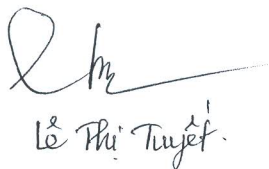 Lê Thị Tuyết.